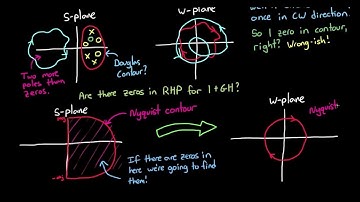 S-plane
W-plane
once in CW direction.
So 1 zero in contour,
right? Wrong-ish!
Two more
poles than
zeros.
Douglas
Contour?
Are there zeros in RHP for 1+GH?
S-plane
Nyquist contour
W-plane
Nyquist
If there are zeros in
here we're going to find
them!